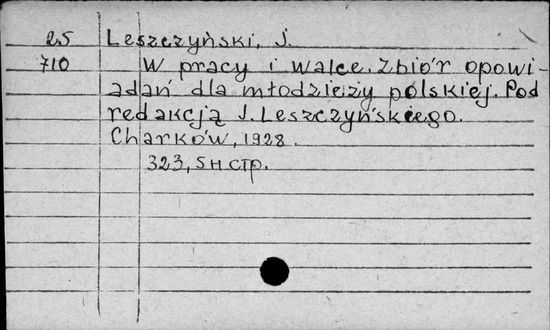 25 Leszczyński, J.
710 W pracy i walce. Zbiór opowi-
adań dla młodzieży polskiej. Pod
redakcją J. Leszczyńskiego.
Charków, 1928.
323, 5 н стр.